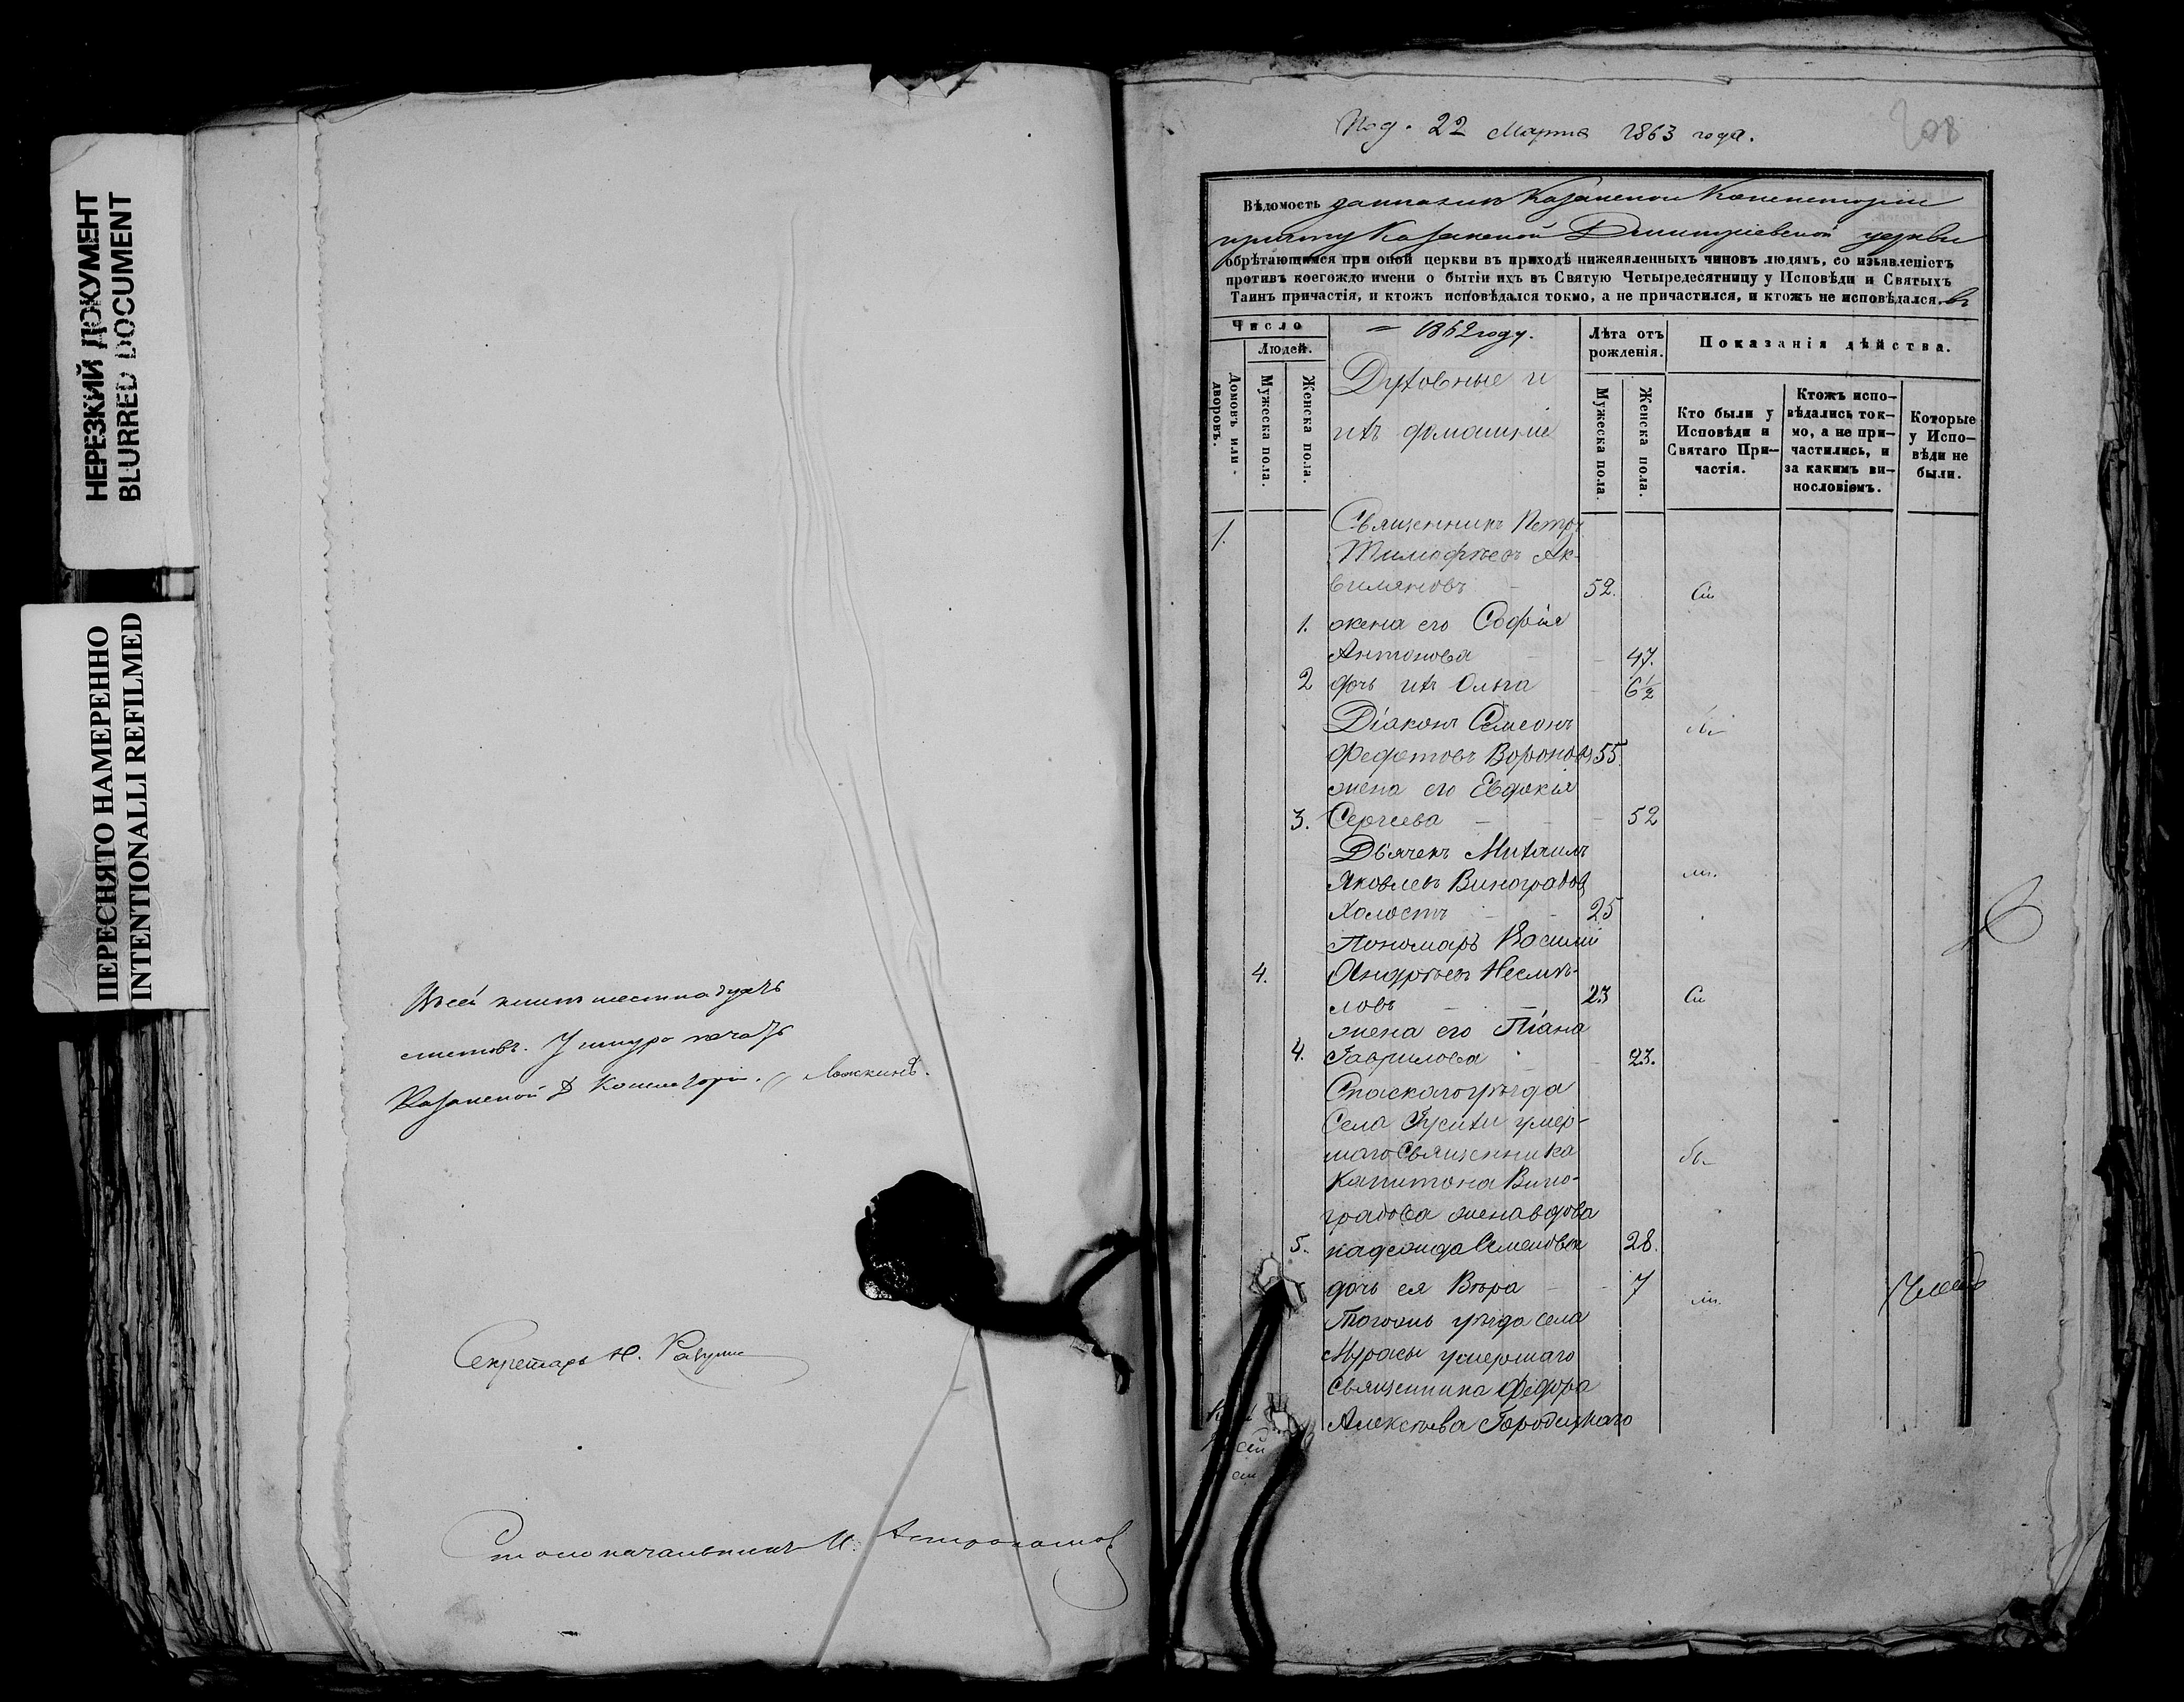 НЕРЕЗКИЙ ДОКУМЕНТ
BLURRED DOCUMENT
ПЕРЕСНЯТО НАМЕРЕННО
INTENTIONALLI REFILMED
листовъ. печать
Казанской Д Консисторіи.
Секретарь Н.
Столоначальникъ И.
Под. 22 Марта 1863 года.
208
Вѣдомость данная изъ Казанской Консисторіи
причту Казанской Димитріевской церкви
обрѣтающимся при оной церкви въ приходѣ нижеявленныхъ чиновъ людямъ, со изъявленіетъ
противъ коегождо имени о бытіи ихъ въ Святую Четыредесятницу у Исповѣди и Святыхъ
Таинъ причастія, и ктожъ исповѣдался токмо, а не причастился, и ктожъ не исповѣдался въ
Число
= 1862 году.
Лѣта отъ рожденія.
Показанія дѣйства.
Людей.
Домовъ или дворовъ.
Мужеска пола.
Женска пола.
Духовные и
ихъ домашніе
Мужеска пола
Женска пола.
Кто были у Исповѣди и Святаго Причастія.
Ктожъ исповѣдались токмо, а не причастились, и за какимъ винословіемъ.
Которые у Исповѣди не были.
1. Священникъ Петръ
Тимофѣевъ Ак-
виляновъ 52.
1. жена его Софія
Антонова 47.
2 дочь ихъ Ольга 6½
Діаконъ Симеонъ
Федотовъ Вороновъ 55.
жена его Евдокія
3. Сергеева 52
Дьячекъ Михаилъ
Яковлевъ Виноградов
Холостъ 25
Пономарь Василий
4. Андреевъ Несмѣ-
ловъ 23
жена его
4. Гаврилова 23.
Спаскаго уѣзда
Села умер-
шаго Священника
Капитона Вино-
градова жена вдова
5. надежда Семенова 28.
дочь ея Вѣра 7
Тогожъ уѣзда села
Мурасы умершаго
Священника Федора
Алексѣева Городецкаго